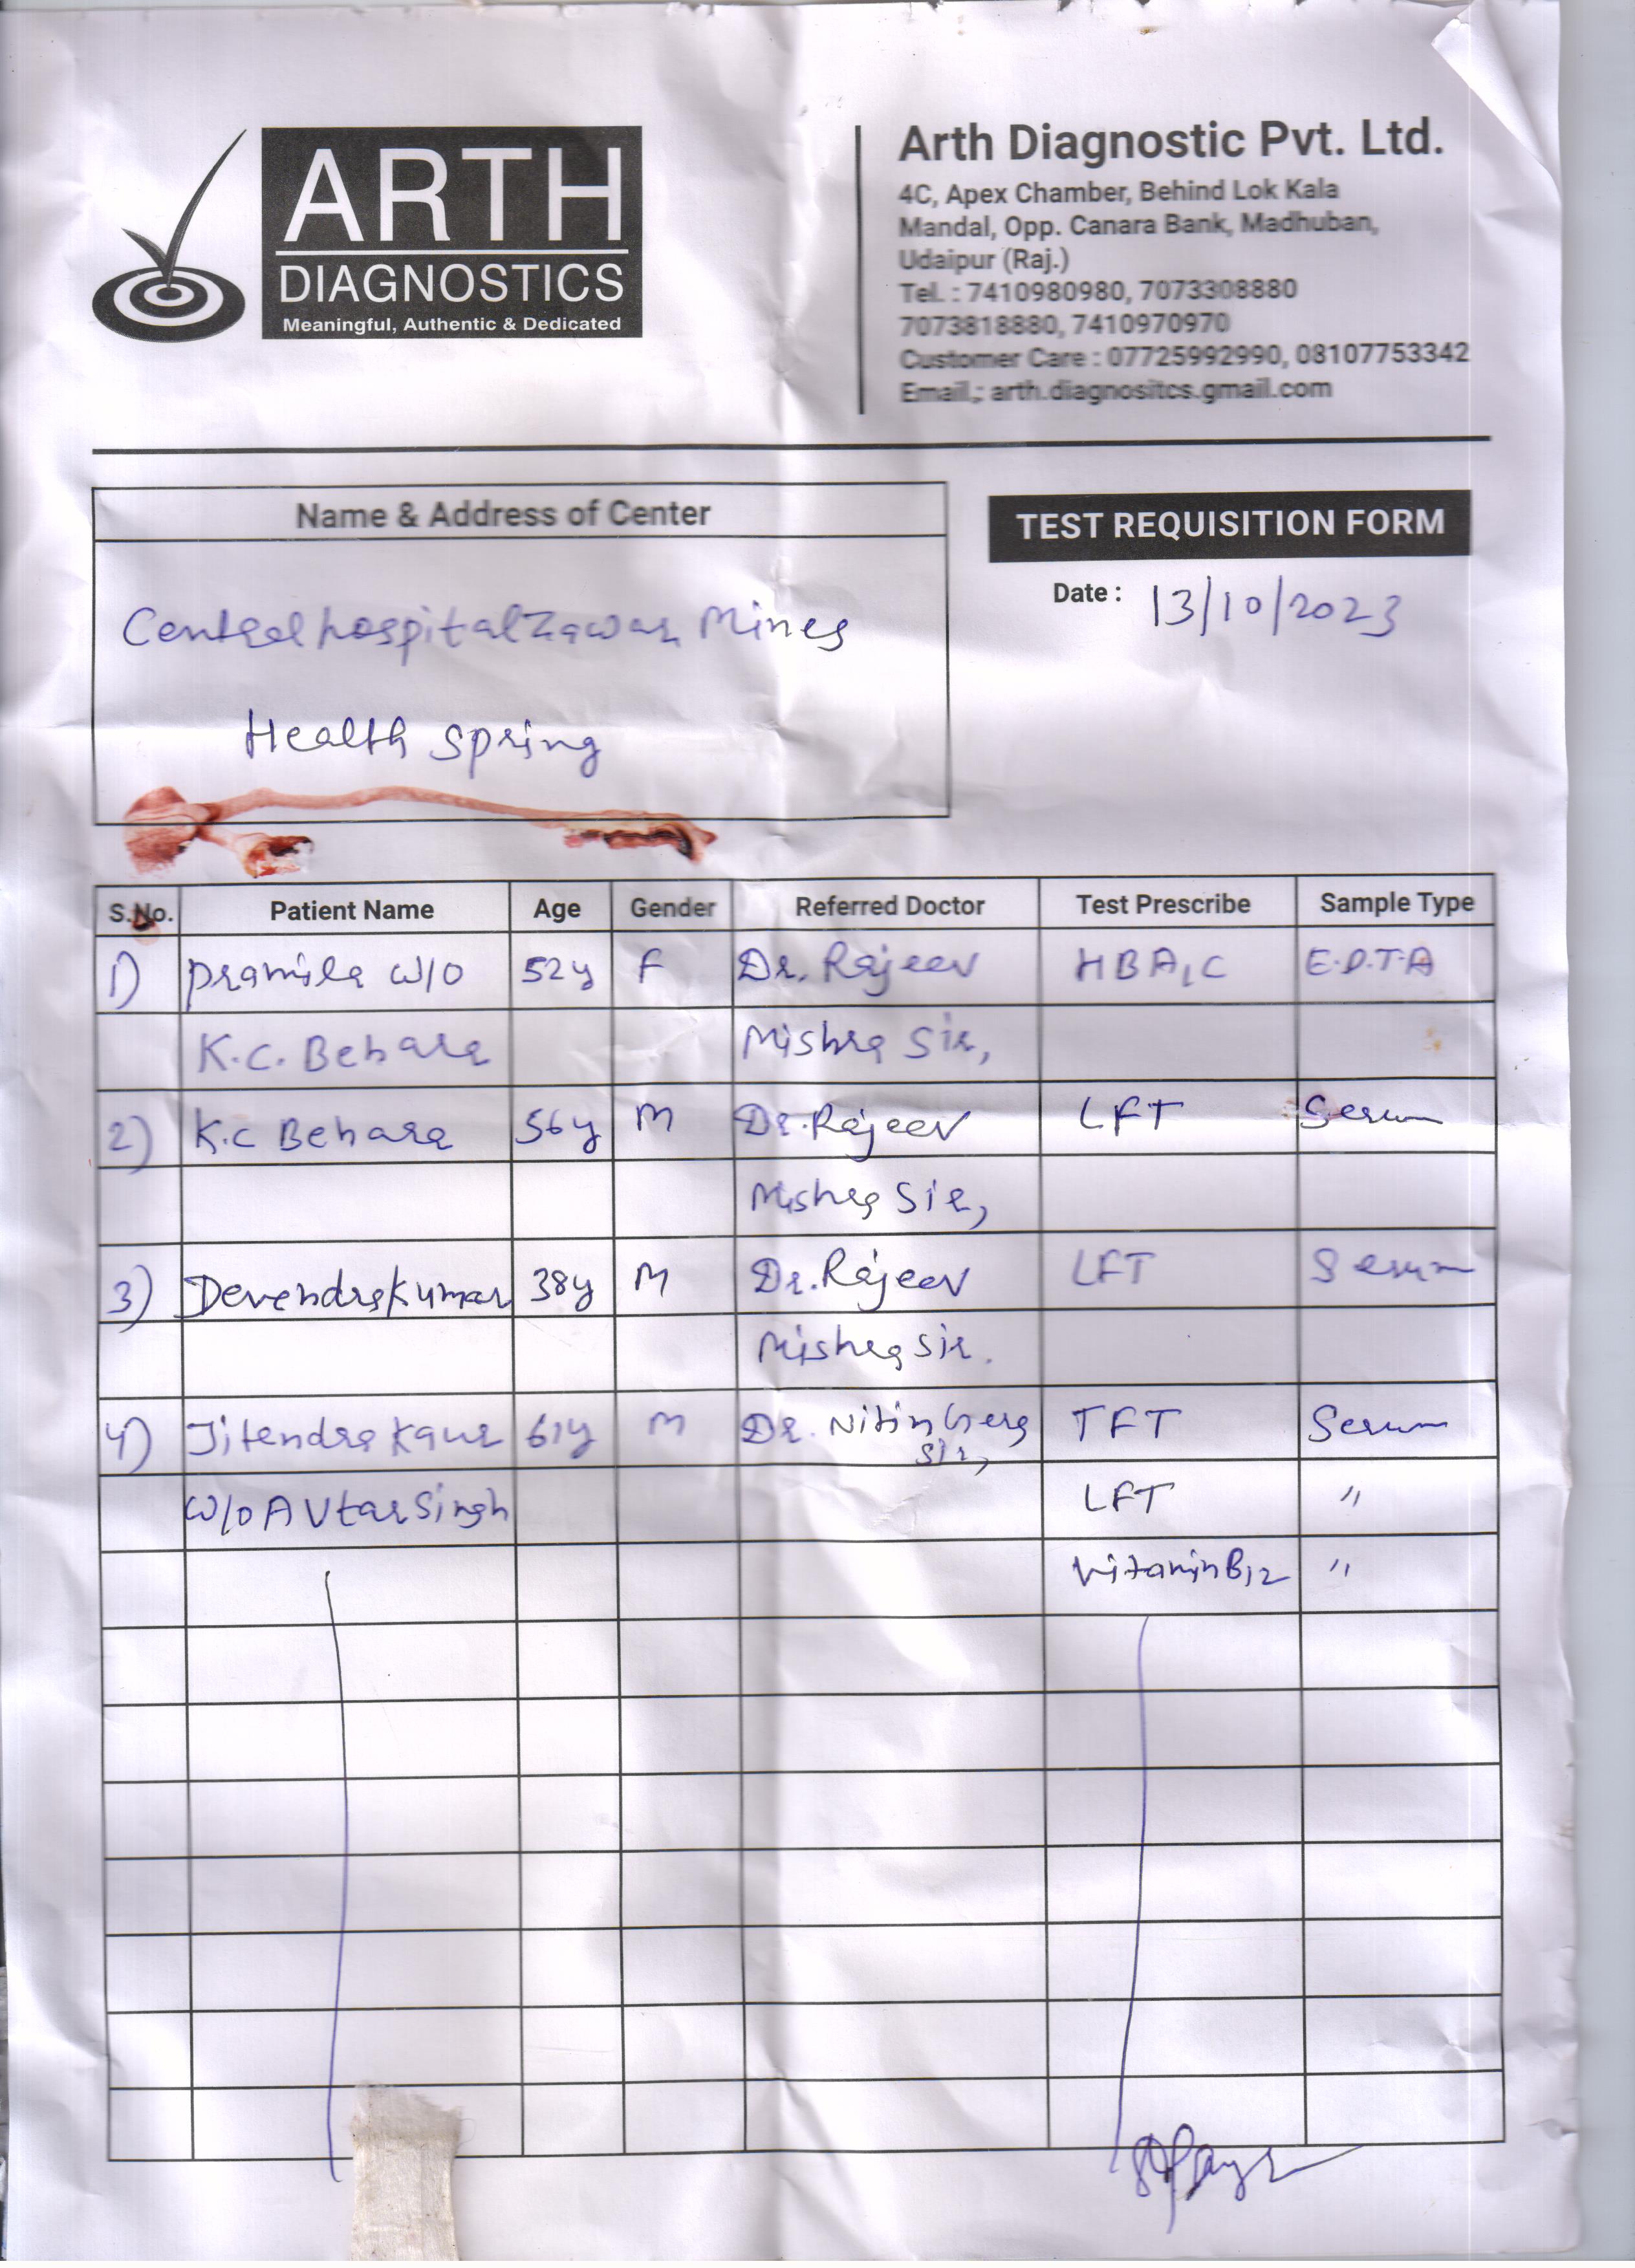 ARTH
DIAGNOSTICS
Meaningful, Authentic & Dedicated
Arth Diagnostic Pvt. Ltd.
4C, Apex Chamber, Behind Lok Kala
Mandal, Opp. Canara Bank, Madhuban,
Udaipur (Raj.)
Tel. : 7410980980, 7073308880
7073818880, 7410970970
Customer Care : 07725992990, 08107753342
Email,: arth.diagnositcs.gmail.com
Name & Address of Center
Central hospital Zawar Mines
Health Spring
TEST REQUISITION FORM
Date : 13/10/2023
S.No. Patient Name Age Gender Referred Doctor Test Prescribe Sample Type
1) Pramila W/O 52y F Dr. Rajeev HBA1C E.D.T.A
K.C. Behara Mishra Sir,
2) K.C Behara 56y M Dr. Rajeev LFT Serum
Mishra Sir,
3) Devendra Kumar 38y M Dr. Rajeev LFT Serum
Mishra Sir.
4) Jitendra Kaur 61y M Dr. Nitin Sir, TFT Serum
W/O AVtar Singh LFT "
Vitamin B12 "